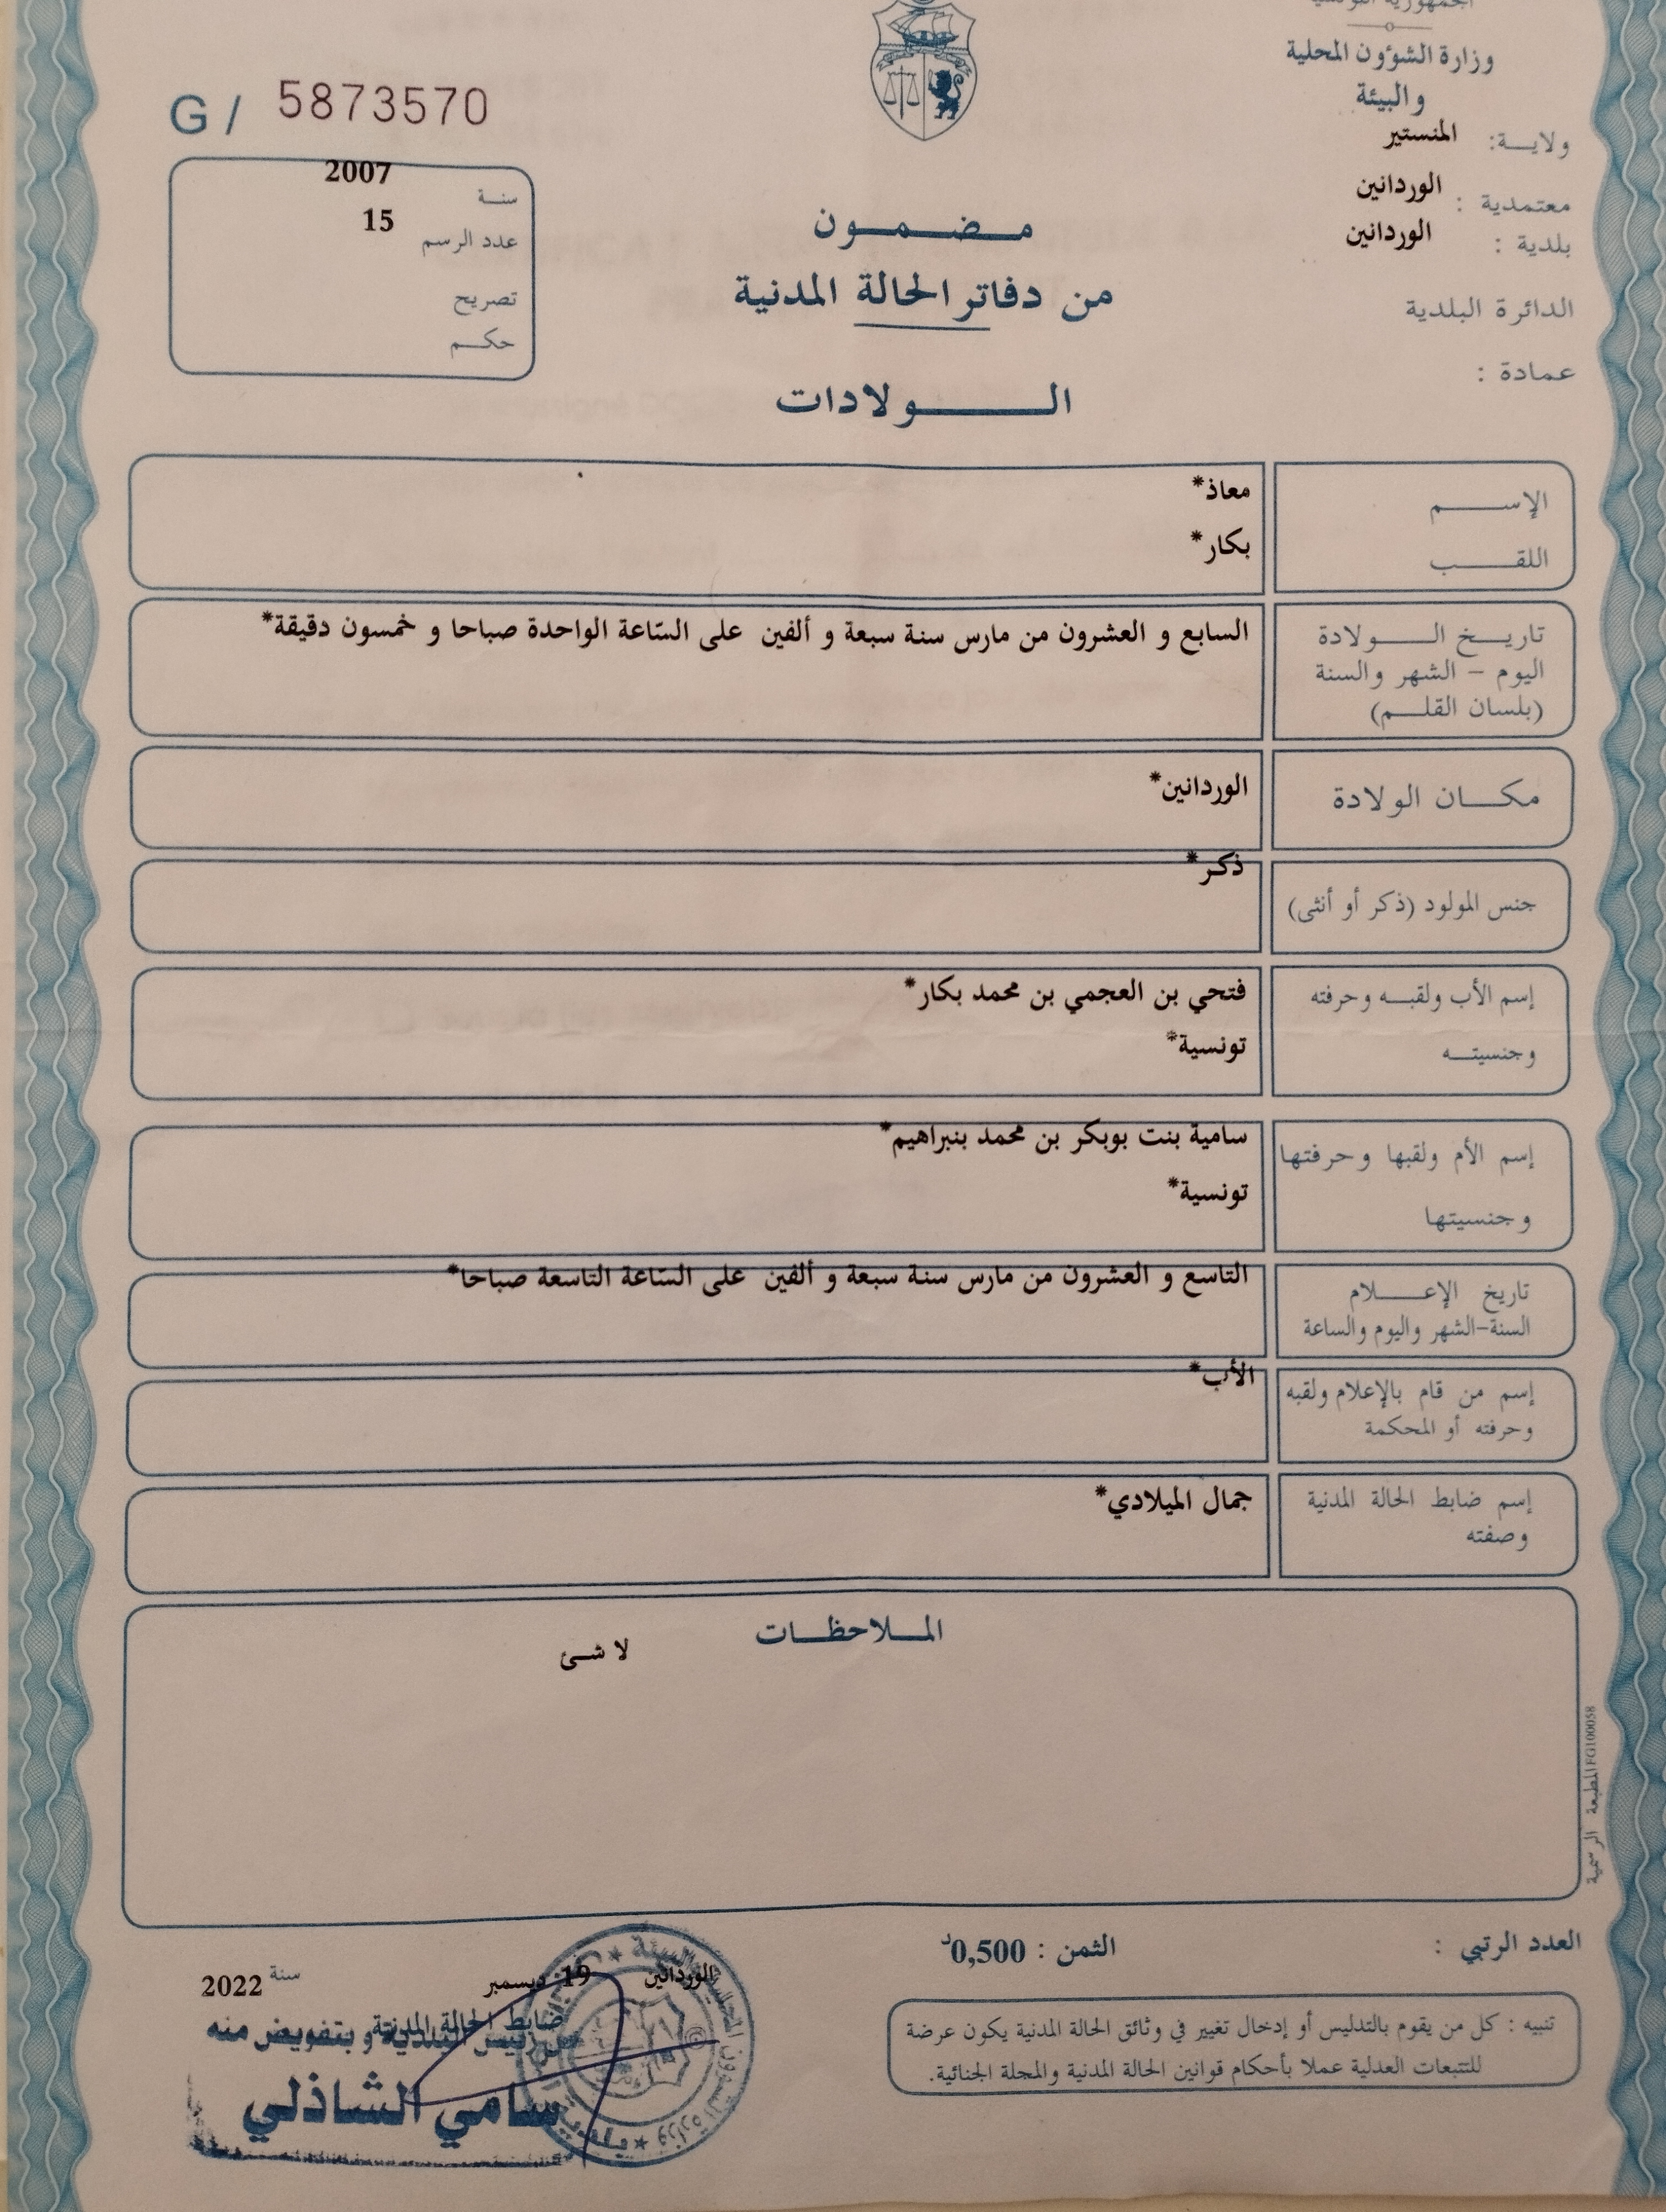 الجمهورية التونسية
وزارة الشؤون المحلية
والبيئة
ولاية: المنستير
معتمدية : الوردانين
بلدية : الوردانين
الدائرة البلدية
عمادة :
G / 5873570
سنة 2007
عدد الرسم 15
تصريح
حكم
مضمون
من دفاتر الحالة المدنية
الولادات
الإسم معاذ*
اللقب بكار*
تاريخ الولادة السابع و العشرون من مارس سنة سبعة و ألفين على السّاعة الواحدة صباحا و خمسون دقيقة*
اليوم – الشهر والسنة
(بلسان القلم)
مكان الولادة الوردانين*
جنس المولود (ذكر أو أنثى) ذكر*
إسم الأب ولقبه وحرفته فتحي بن العجمي بن محمد بكار*
وجنسيته تونسية*
إسم الأم ولقبها وحرفتها سامية بنت بوبكر بن محمد بنبراهيم*
وجنسيتها تونسية*
تاريخ الإعلام التاسع و العشرون من مارس سنة سبعة و ألفين على السّاعة التاسعة صباحا*
السنة-الشهر واليوم والساعة
إسم من قام بالإعلام ولقبه الأب*
وحرفته أو المحكمة
إسم ضابط الحالة المدنية جمال الميلادي*
وصفته
الملاحظات
لا شئ
المطبعة الرسمية FG100058
العدد الرتبي :
الثمن : 0,500د
الوردانين 19 ديسمبر سنة 2022
ضابط الحالة المدنية
عن رئيس البلدية و بتفويض منه
سامي الشاذلي
تنبيه : كل من يقوم بالتدليس أو إدخال تغيير في وثائق الحالة المدنية يكون عرضة
للتتبعات العدلية عملا بأحكام قوانين الحالة المدنية والمجلة الجنائية.